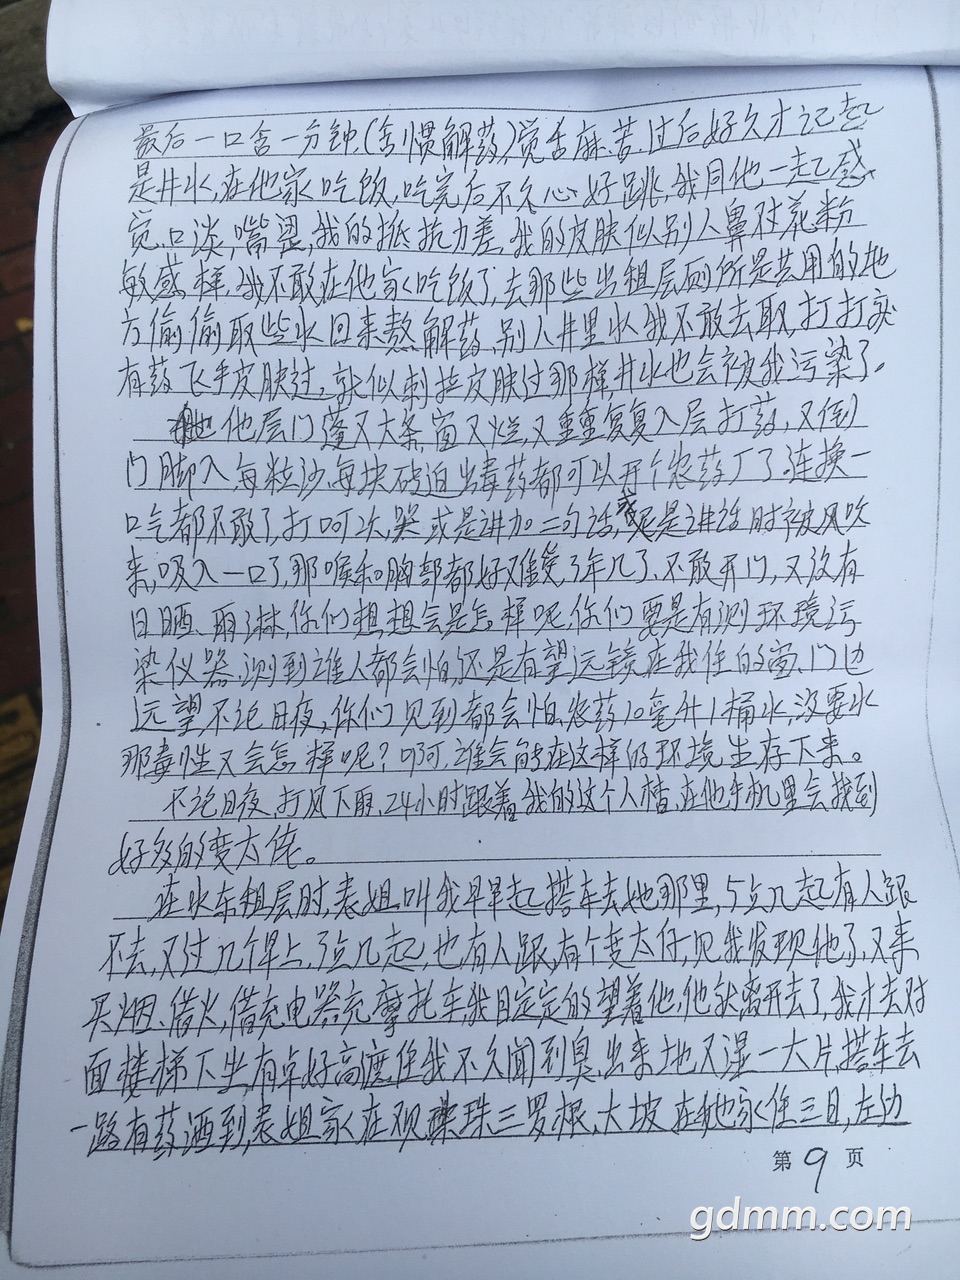 最后一口含一分钟.(含惯解药)觉舌麻.苦.过后好久才记起
是井水,在他家吃饭,吃完后不久心好跳,我同他一起感
觉.口淡,嘴涩,我的抵抗力差.我的皮肤似别人鼻对花粉
敏感样.我不敢在他家吃饭了,去那些出租屋厕所是共用的地
方偷偷取些水回来熬解药.别人井里水我不敢去取,打打
有药飞乎皮肤过,就似刺拉皮肤过那样,井水也会被我污染了。
他屋门篷又大条,窗又烂,又重重复复入屋打药,又倒
门脚入,每粒沙每块砖迫出毒药都可以开个农药厂了,连换一
口气都不敢了,打呵欠,哭或是讲加二句话,或是讲话时被风吹
来,吸入一口了,那喉和胸部都好难受,3年几了,不敢开门,又没有
日晒、雨淋,你们想想会是怎样呢.你们要是有测环境污
染仪器.测到谁人都会怕,还是有望远镜在我住的窗、门边
远望,不论日夜,你们见到都会怕.农药10毫升1桶水,没要水
那毒性又会怎样呢?啊,谁会能在这样的环境生存下来。
不论日夜,打风下雨,24小时跟着我的这个人楂,在他手机里会找到
好多的变太佬。
在水东租屋时,表姐叫我早早起搭车去她那里,5点几起有人跟
不去,又过几个早上.3点几起,也有人跟,有个变太仔,见我发现他了,又来
买烟、借火,借充电器充摩托车,我目定定的望着他,他就离开去了,我才去对
面楼梯下坐,有卓好高度.但我不久闻到臭.出来地又湿一大片,搭车去
一路有药洒到,表姐家在观珠三罗根,大坡在她家住三日,左边
第9页
gdmm.com